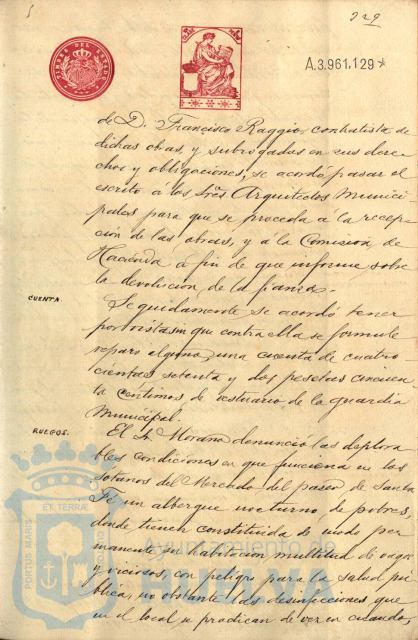 229
TIMBRE DEL ESTADO
A.3.961.129*
de D. Francisco Raggio, contratista de
dichas obras, y subrogadas en sus dere-
chos y obligaciones, se acordó pasar el
escrito á los Sres Arquitectos Munici-
pales para que se proceda á la recep-
ción de las obras, y a la Comision de
Hacienda a fin de que informe sobre
la devolucion de la fianza.
CUENTA.
Seguidamente se acordó tener
por vista sin que contra ella se formule
reparo alguno, una cuenta de cuatro
cientas setenta y dos pesetas cincuen
ta centimos de vestuario de la guardia
Municipal.
RUEGOS.
El Sr. Morano denunció las deplora
bles condiciones en que funciona en los
sotanos del Mercado del paseo de Santa
Fé un albergue nocturno de pobres,
donde tienen constituida de modo per
manente su habitacion multitud de vagos
y viciosos, con peligro para la salud pú-
blica, no obstante las desinfecciones que
en el local se practican de vez en cuando,
PORTUS MARIS
ET TERRÆ
Ayuntamiento de
HUELVA